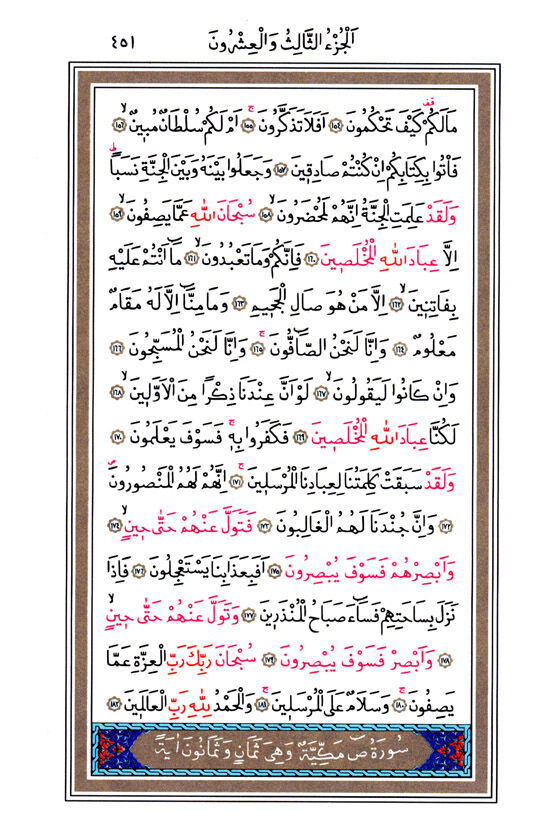 اَلْجُزْءُ الثَّالِثُ وَالْعِشْرُونَ ٤٥١
مَالَكُمْ۠ كَيْفَ تَحْكُمُونَ ﴿١٥٤﴾ اَفَلَا تَذَكَّرُونَۚ ﴿١٥٥﴾ اَمْ لَكُمْ سُلْطَانٌ مُب۪ينٌۙ ﴿١٥٦﴾
فَأْتُوا بِكِتَابِكُمْ اِنْ كُنْتُمْ صَادِق۪ينَ ﴿١٥٧﴾ وَجَعَلُوا بَيْنَهُ وَبَيْنَ الْجِنَّةِ نَسَباًۜ
وَلَقَدْ عَلِمَتِ الْجِنَّةُ اِنَّهُمْ لَمُحْضَرُونَۙ ﴿١٥٨﴾ سُبْحَانَ اللّٰهِ عَمَّا يَصِفُونَۙ ﴿١٥٩﴾
اِلَّا عِبَادَ اللّٰهِ الْمُخْلَص۪ينَ ﴿١٦٠﴾ فَاِنَّكُمْ وَمَا تَعْبُدُونَۙ ﴿١٦١﴾ مَٓا اَنْتُمْ عَلَيْهِ
بِفَاتِن۪ينَۙ ﴿١٦٢﴾ اِلَّا مَنْ هُوَ صَالِ الْجَح۪يمِ ﴿١٦٣﴾ وَمَا مِنَّٓا اِلَّا لَهُ مَقَامٌ
مَعْلُومٌ ﴿١٦٤﴾ وَاِنَّا لَنَحْنُ الصَّٓافُّونَۚ ﴿١٦٥﴾ وَاِنَّا لَنَحْنُ الْمُسَبِّحُونَ ﴿١٦٦﴾
وَاِنْ كَانُوا لَيَقُولُونَۙ ﴿١٦٧﴾ لَوْ اَنَّ عِنْدَنَا ذِكْراً مِنَ الْاَوَّل۪ينَۙ ﴿١٦٨﴾
لَكُنَّا عِبَادَ اللّٰهِ الْمُخْلَص۪ينَ ﴿١٦٩﴾ فَكَفَرُوا بِه۪ۚ فَسَوْفَ يَعْلَمُونَ ﴿١٧٠﴾
وَلَقَدْ سَبَقَتْ كَلِمَتُنَا لِعِبَادِنَا الْمُرْسَل۪ينَۚ ﴿١٧١﴾ اِنَّهُمْ لَهُمُ الْمَنْصُورُونَۖ
﴿١٧٢﴾ وَاِنَّ جُنْدَنَا لَهُمُ الْغَالِبُونَ ﴿١٧٣﴾ فَتَوَلَّ عَنْهُمْ حَتّٰى ح۪ينٍۙ ﴿١٧٤﴾
وَاَبْصِرْهُمْ فَسَوْفَ يُبْصِرُونَ ﴿١٧٥﴾ اَفَبِعَذَابِنَا يَسْتَعْجِلُونَ ﴿١٧٦﴾ فَاِذَا
نَزَلَ بِسَاحَتِهِمْ فَسَٓاءَ صَبَاحُ الْمُنْذَر۪ينَ ﴿١٧٧﴾ وَتَوَلَّ عَنْهُمْ حَتّٰى ح۪ينٍۙ
﴿١٧٨﴾ وَاَبْصِرْ فَسَوْفَ يُبْصِرُونَ ﴿١٧٩﴾ سُبْحَانَ رَبِّكَ رَبِّ الْعِزَّةِ عَمَّا
يَصِفُونَۚ ﴿١٨٠﴾ وَسَلَامٌ عَلَى الْمُرْسَل۪ينَۚ ﴿١٨١﴾ وَالْحَمْدُ لِلّٰهِ رَبِّ الْعَالَم۪ينَ ﴿١٨٢﴾
سُورَةُ صٓ مَكِّيَّةٌ وَهِيَ ثَمَانٍ وَثَمَانُونَ اٰيَةً